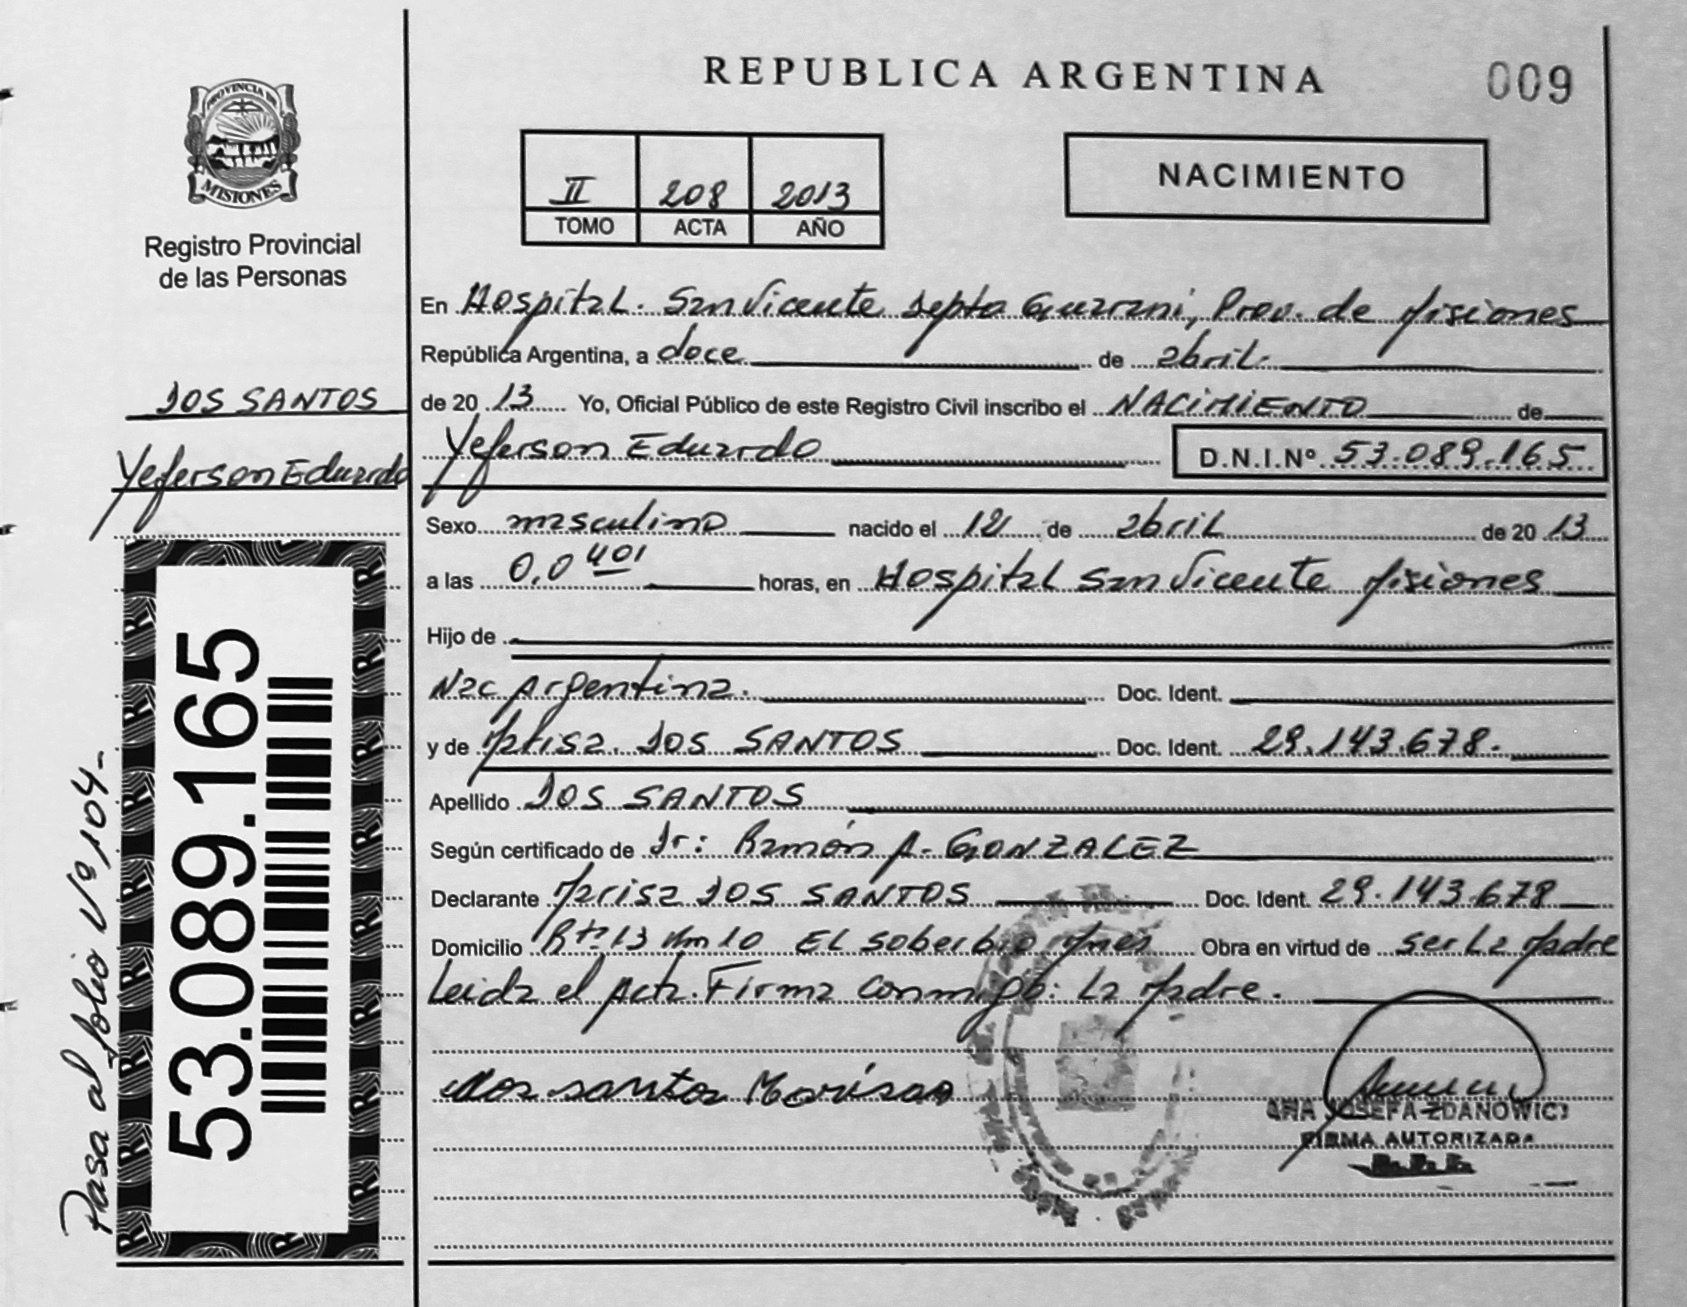 REPUBLICA ARGENTINA
009
PROVINCIA DE
MISIONES
Registro Provincial
de las Personas
II 208 2013
TOMO ACTA AÑO
NACIMIENTO
En Hospital. San Vicente Depto Guarani, Prov. de Misiones
República Argentina, a doce de abril.
de 20 13 Yo, Oficial Público de este Registro Civil inscribo el NACIMIENTO de
Yeferson Eduardo D.N.I.Nº 53.089.165
Sexo masculino nacido el 12 de abril de 20 13
a las 0,0 40' horas, en Hospital San Vicente Misiones
Hijo de
Nac Argentina. Doc. Ident.
y de Marisa. DOS SANTOS Doc. Ident. 29.143.678.
Apellido DOS SANTOS
Según certificado de Dr: Ramón A. GONZALEZ
Declarante Marisa DOS SANTOS Doc. Ident. 29.143.678
Domicilio Rta 13 Km 10 EL Soberbio Mnes Obra en virtud de ser La Madre
Leida el Acta. Firma conmigo: La Madre.
dos santos Marisa
JOSEFA ZDANOWICZ
FIRMA AUTORIZADA
DOS SANTOS
Yeferson Eduardo
53.089.165
Pasa al folio Nº 104-